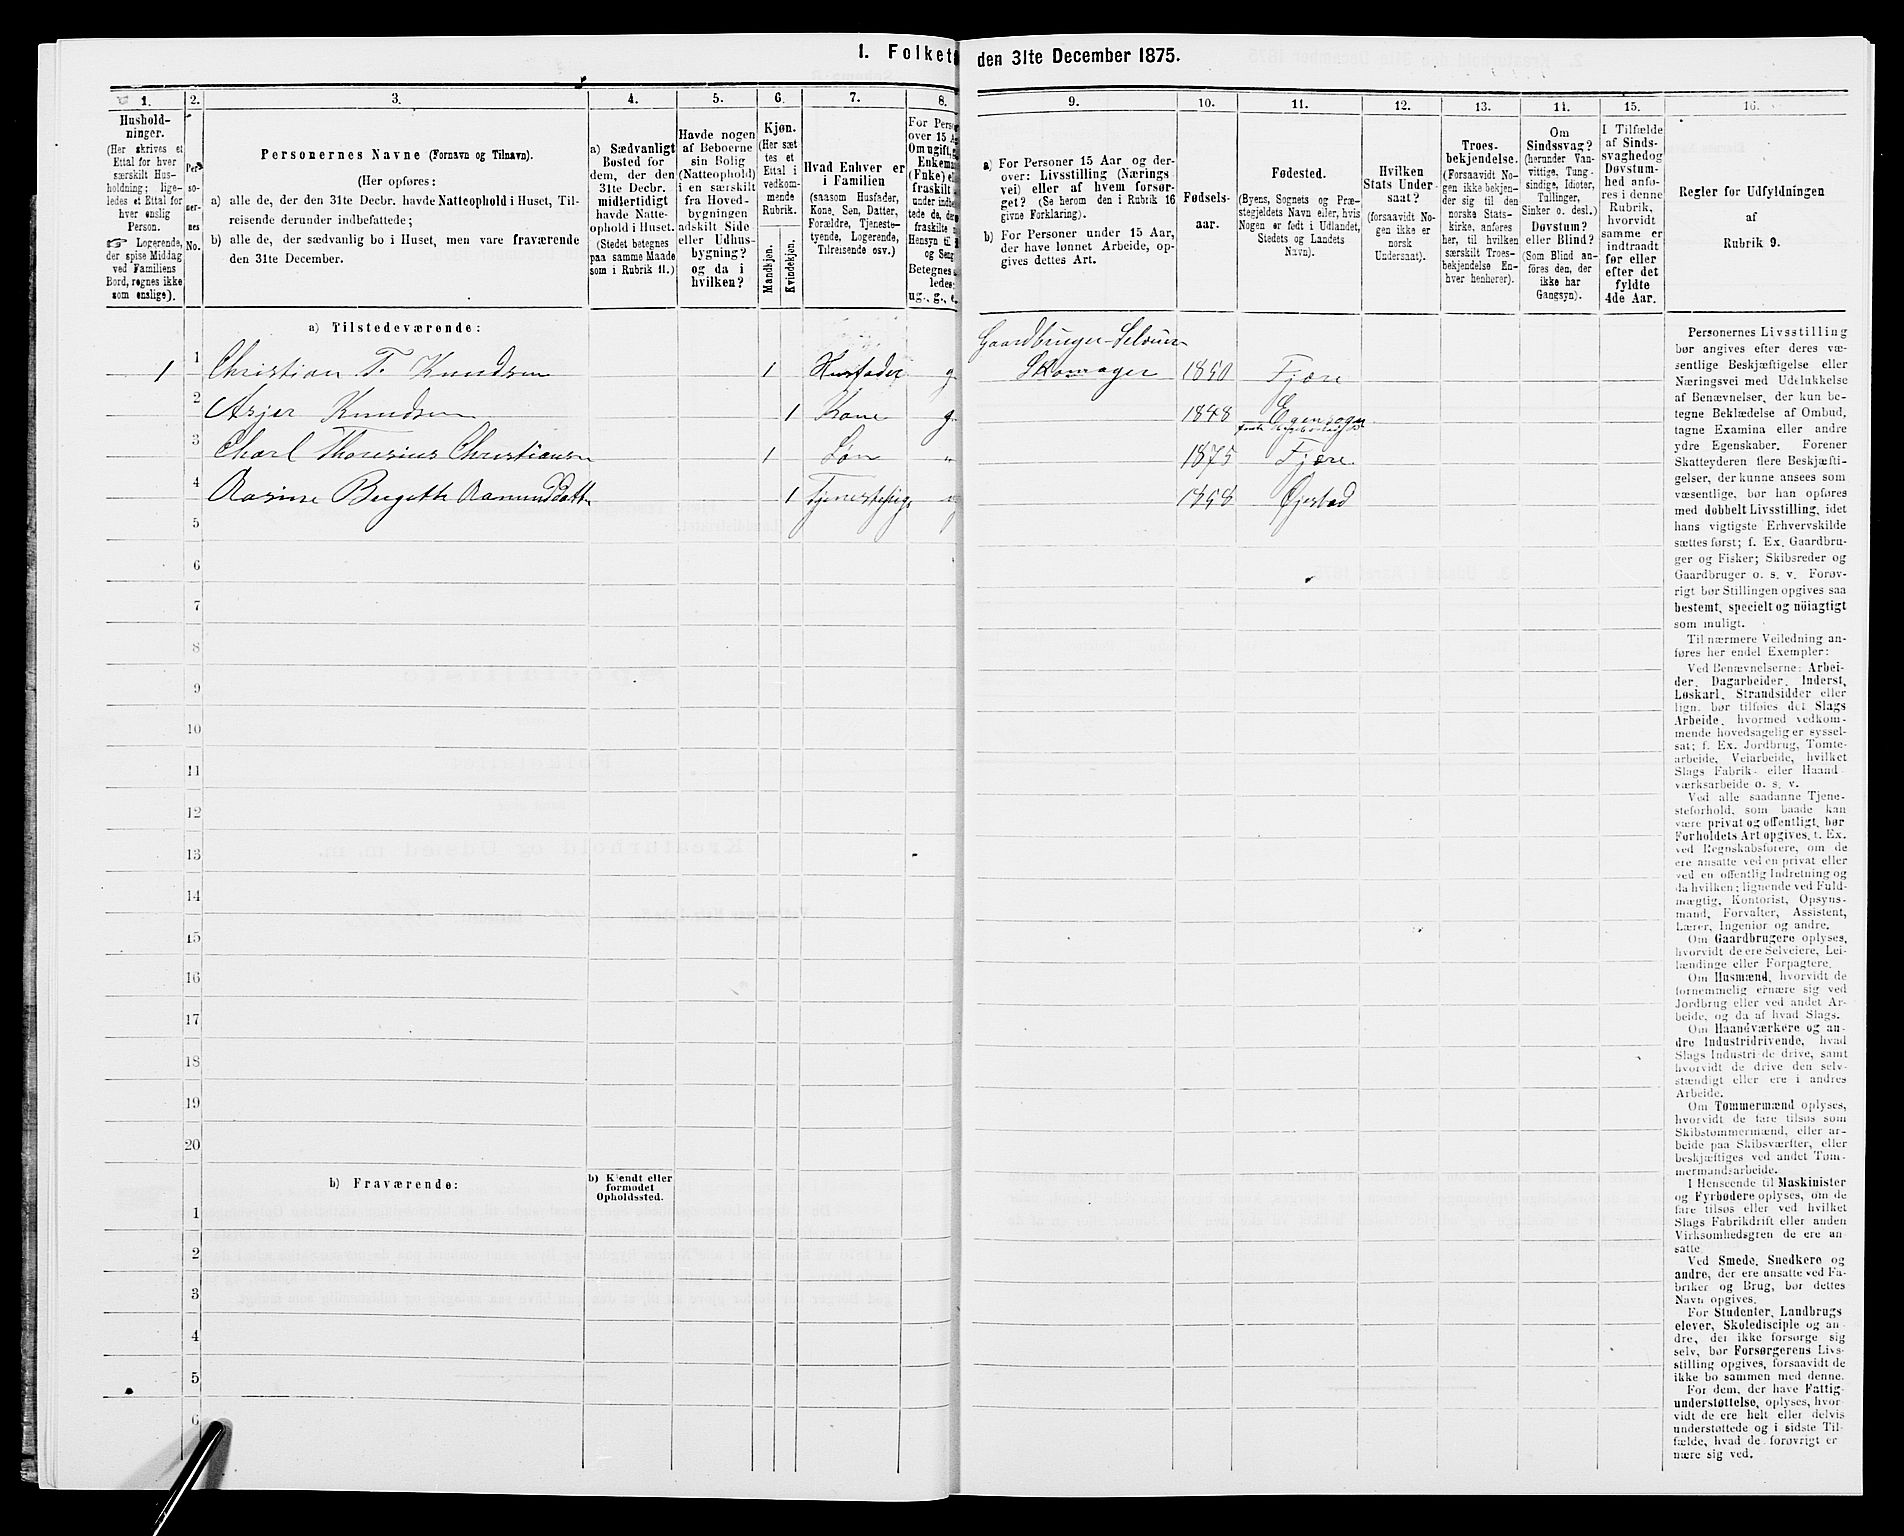 1. Folket
den 31te December 1875.
1.
2.
3.
4.
5.
6.
7.
8.
9.
10.
11.
12.
13.
14.
15.
16.
Hushold-
ninger.
(Her skrives et
Ettal for hver
særskilt Hus-
holdning; lige-
ledes et Ettal for
hver enslig
Person.
☞ Logerende,
der spise Middag
ved Familiens
Bord, regnes ikke
som enslige).
Per-
so-
ner-
nes
No.
Personernes Navne (Fornavn og Tilnavn).
(Her opføres:
a) alle de, der den 31te Decbr. havde Natteophold i Huset, Til-
reisende derunder indbefattede;
b) alle de, der sædvanlig bo i Huset, men vare fraværende
den 31te December.
a) Sædvanligt
Bosted for
dem, der den
31te Decbr.
midlertidigt
havde Natte-
ophold i Huset.
(Stedet betegnes
paa samme Maade
som i Rubrik 11.)
Havde nogen
af Beboerne
sin Bolig
(Natteophold)
i en særskilt
fra Hoved-
bygningen
adskilt Side
eller Udhus-
bygning?
og da i
hvilken?
Kjøn.
(Her sæt
tes et
Ettal i
vedkom-
mende
Rubrik.
Mandkjøn.
Kvindekjøn.
Hvad Enhver er
i Familien
(saasom Husfader,
Kone, Søn, Datter,
Forældre, Tjeneste-
tyende, Logerende,
Tilreisende osv.)
For Perso
over 15 A
Om ugift, g
Enkema
(Enke) e
fraskilt
under indbe
tede de, der
fraskilte
Hensyn til
og Seng
Betegnes
ledes:
ug., g., e.
a) For Personer 15 Aar og der-
over: Livsstilling (Nærings
vei) eller af hvem forsør-
get? (Se herom den i Rubrik 16
givne Forklaring).
b) For Personer under 15 Aar,
der have lønnet Arbeide, op-
gives dettes Art.
Fødsels-
aar.
Fødested.
(Byens, Sognets og Præ-
stegjeldets Navn eller, hvis
Nogen er født i Udlandet,
Stedets og Landets
Navn).
Hvilken
Stats Under-
saat?
(forsaavidt No-
gen ikke er
norsk
Undersaat).
Troes-
bekjendelse.
(Forsaavidt No-
gen ikke bekjen-
der sig til den
norske Stats-
kirke, anføres
her, til hvilken
særskilt Troes-
bekjendelse En-
hver henhører).
Om
Sindssvag?
(herunder Van-
vittige, Tung-
sindige, Idioter,
Tullinger,
Sinker o. desl.)
Døvstum?
eller Blind?
(Som Blind an-
føres den, der
ikke har
Gangsyn).
I Tilfælde
af Sinds-
svaghed og
Døvstum-
hed anfø-
res i denne
Rubrik,
hvorvidt
samme er
indtraadt
før eller
efter det
fyldte
4de Aar.
Regler for Udfyldningen
af
Rubrik 9.
a) Tilstedeværende:
Gaardbruger Selveier
1 1 Christian T. Knudsen 1 Husfader g. Skomager 1850 Fjære
2 Asjer Knudsen 1 Kone g. 1848 Egensogn
3 Charl Thoresius Christiansen 1 Søn " 1875 Fjære
4 Aasine Bergethe Aamundsdatt 1 Tjenestepig 1858 Øjestad
5
6
7
8
9
10
11
12
13
14
15
16
17
18
19
20
b) Fraværende:
b) Kjendt eller
formodet
Opholdssted.
1
2
3
4
5
6
Personernes Livsstilling
bør angives efter deres væ-
sentlige Beskjæftigelse eller
Næringsvei med Udelukkelse
af Benævnelser, der kun be-
tegne Beklædelse af Ombud,
tagne Examina eller andre
ydre Egenskaber. Forener
Skatteyderen flere Beskjæfti-
gelser, der kunne ansees som
væsentlige, bør han opføres
med dobbelt Livsstilling, idet
hans vigtigste Erhvervskilde
sættes først; f. Ex. Gaardbru-
ger og Fisker; Skibsreder og
Gaardbruger o. s. v. Forøv-
rigt bør Stillingen opgives saa
bestemt, specielt og nöiagtigt
som muligt.
Til nærmere Veiledning an-
føres her endel Exempler:
Ved Benævnelserne: Arbei-
der, Dagarbeider, Inderst,
Løskarl, Strandsidder eller
lign. bør tilføies det Slags
Arbeide, hvormed vedkom-
mende hovedsagelig er syssel-
sat; f. Ex. Jordbrug, Tomte-
arbeide, Veiarbeide, hvilket
Slags Fabrik- eller Haand
værksarbeide o. s. v.
Ved alle saadanne Tjene-
steforhold, som baade kan
være privat og offentligt, bør
Forholdets Art opgives, f. Ex.
ved Regnskabsførere, om de
ere ansatte ved en privat eller
ved en offentlig Indretning og
da hvilken; lignende ved Fuld-
mægtig, Kontorist, Opsyns-
mand, Forvalter, Assistent,
Lærer, Ingeniør og andre.
Om Gaardbrugere oplyses,
hvorvidt de ere Selveiere, Lei-
lændinge eller Forpagtere.
Om Husmænd, hvorvidt de
fornemmelig ernære sig ved
Jordbrug eller ved andet Ar-
beide, og da af hvad Slags.
Om Haandværkere og an-
dre Industridrivende, hvad
Slags Industri de drive, samt
hvorvidt de drive den selv-
stændigt eller ere i andres
Arbeide.
Om Tømmermænd oplyses,
hvorvidt de fare tilsøs som
Skibstømmermænd, eller ar-
beide paa Skibsværfter, eller
beskjæftiges ved andet Tøm-
mermandsarbeide.
I Henseende til Maskinister
og Fyrbødere oplyses, om de
fare tilsøs eller ved hvilket
Slags Fabrikdrift eller anden
Virksomhedsgren de ere an-
satte.
Ved Smede, Snedkere og
andre, der ere ansatte ved Fa-
briker og Brug, bør dettes
Navn opgives.
For Studenter, Landbrugs
elever, Skoledisciple og an-
dre, der ikke forsørge sig
selv, bør Forsørgerens Livs-
stilling opgives, forsaavidt de
ikke bo sammen med denne.
For dem, der have Fattig-
understøttelse, oplyses, hvor-
vidt de ere helt eller delvis
understøttede og i sidste Til-
fælde, hvad de forøvrigt er
nære sig ved.